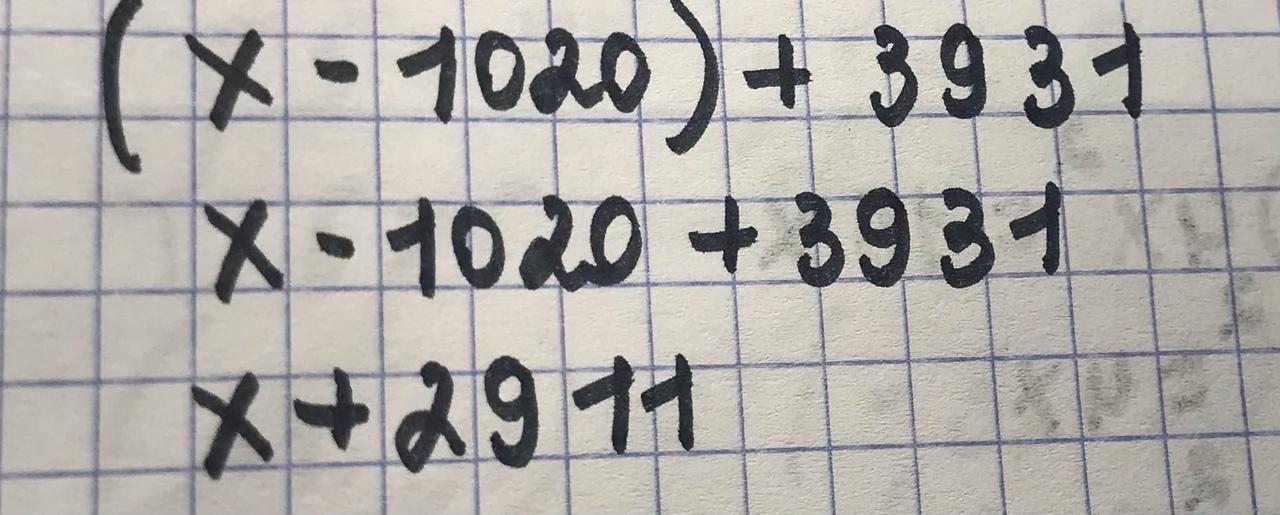 (x - 1020) + 3931
x - 1020 + 3931
x + 2911